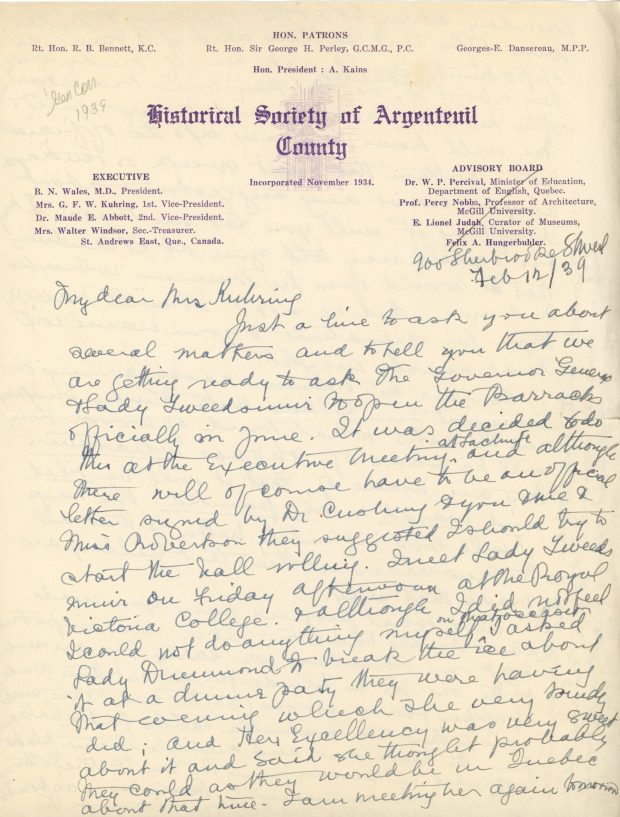 HON. PATRONS
Rt. Hon. R. B. Bennett, K.C. Rt. Hon. Sir George H. Perley, G.C.M.G., P.C. Georges-E. Dansereau, M.P.P.
Hon. President : A. Kains
Gen Corr.
1939
Historical Society of Argenteuil
County
Incorporated November 1934.
EXECUTIVE
B. N. Wales, M.D., President.
Mrs. G. F. W. Kuhring, 1st. Vice-President.
Dr. Maude E. Abbott, 2nd. Vice-President.
Mrs. Walter Windsor, Sec.-Treasurer.
St. Andrews East, Que., Canada.
ADVISORY BOARD
Dr. W. P. Percival, Minister of Education,
Department of English, Quebec.
Prof. Percy Nobbs, Professor of Architecture,
McGill University.
E. Lionel Judah, Curator of Museums,
McGill University.
Felix A. Hungerbuhler.
900 Sherbrooke St West
Feb 12/39
My dear Mrs Kuhring
Just a line to ask you about
several matters and to tell you that we
are getting ready to ask the Governor General
& Lady Tweedsmuir to open the Barracks
officially in June. It was decided to do
this at the Executive Meeting at Lachute and although
there will of course have to be an official
letter signed by Dr. Cushing & you &
Miss Robertson they suggested I should try to
start the ball rolling. I met Lady Tweeds
muir on Friday afternoon at the Royal
Victoria College. & although I did not feel
I could not do anything myself on that occasion I asked
Lady Drummond to break the ice about
it at a dinner party they were having
that evening which she very kindly
did; and Her Excellency was very sweet
about it and said she thought probably
they could as they would be in Quebec
about that time. I am meeting her again tomorrow